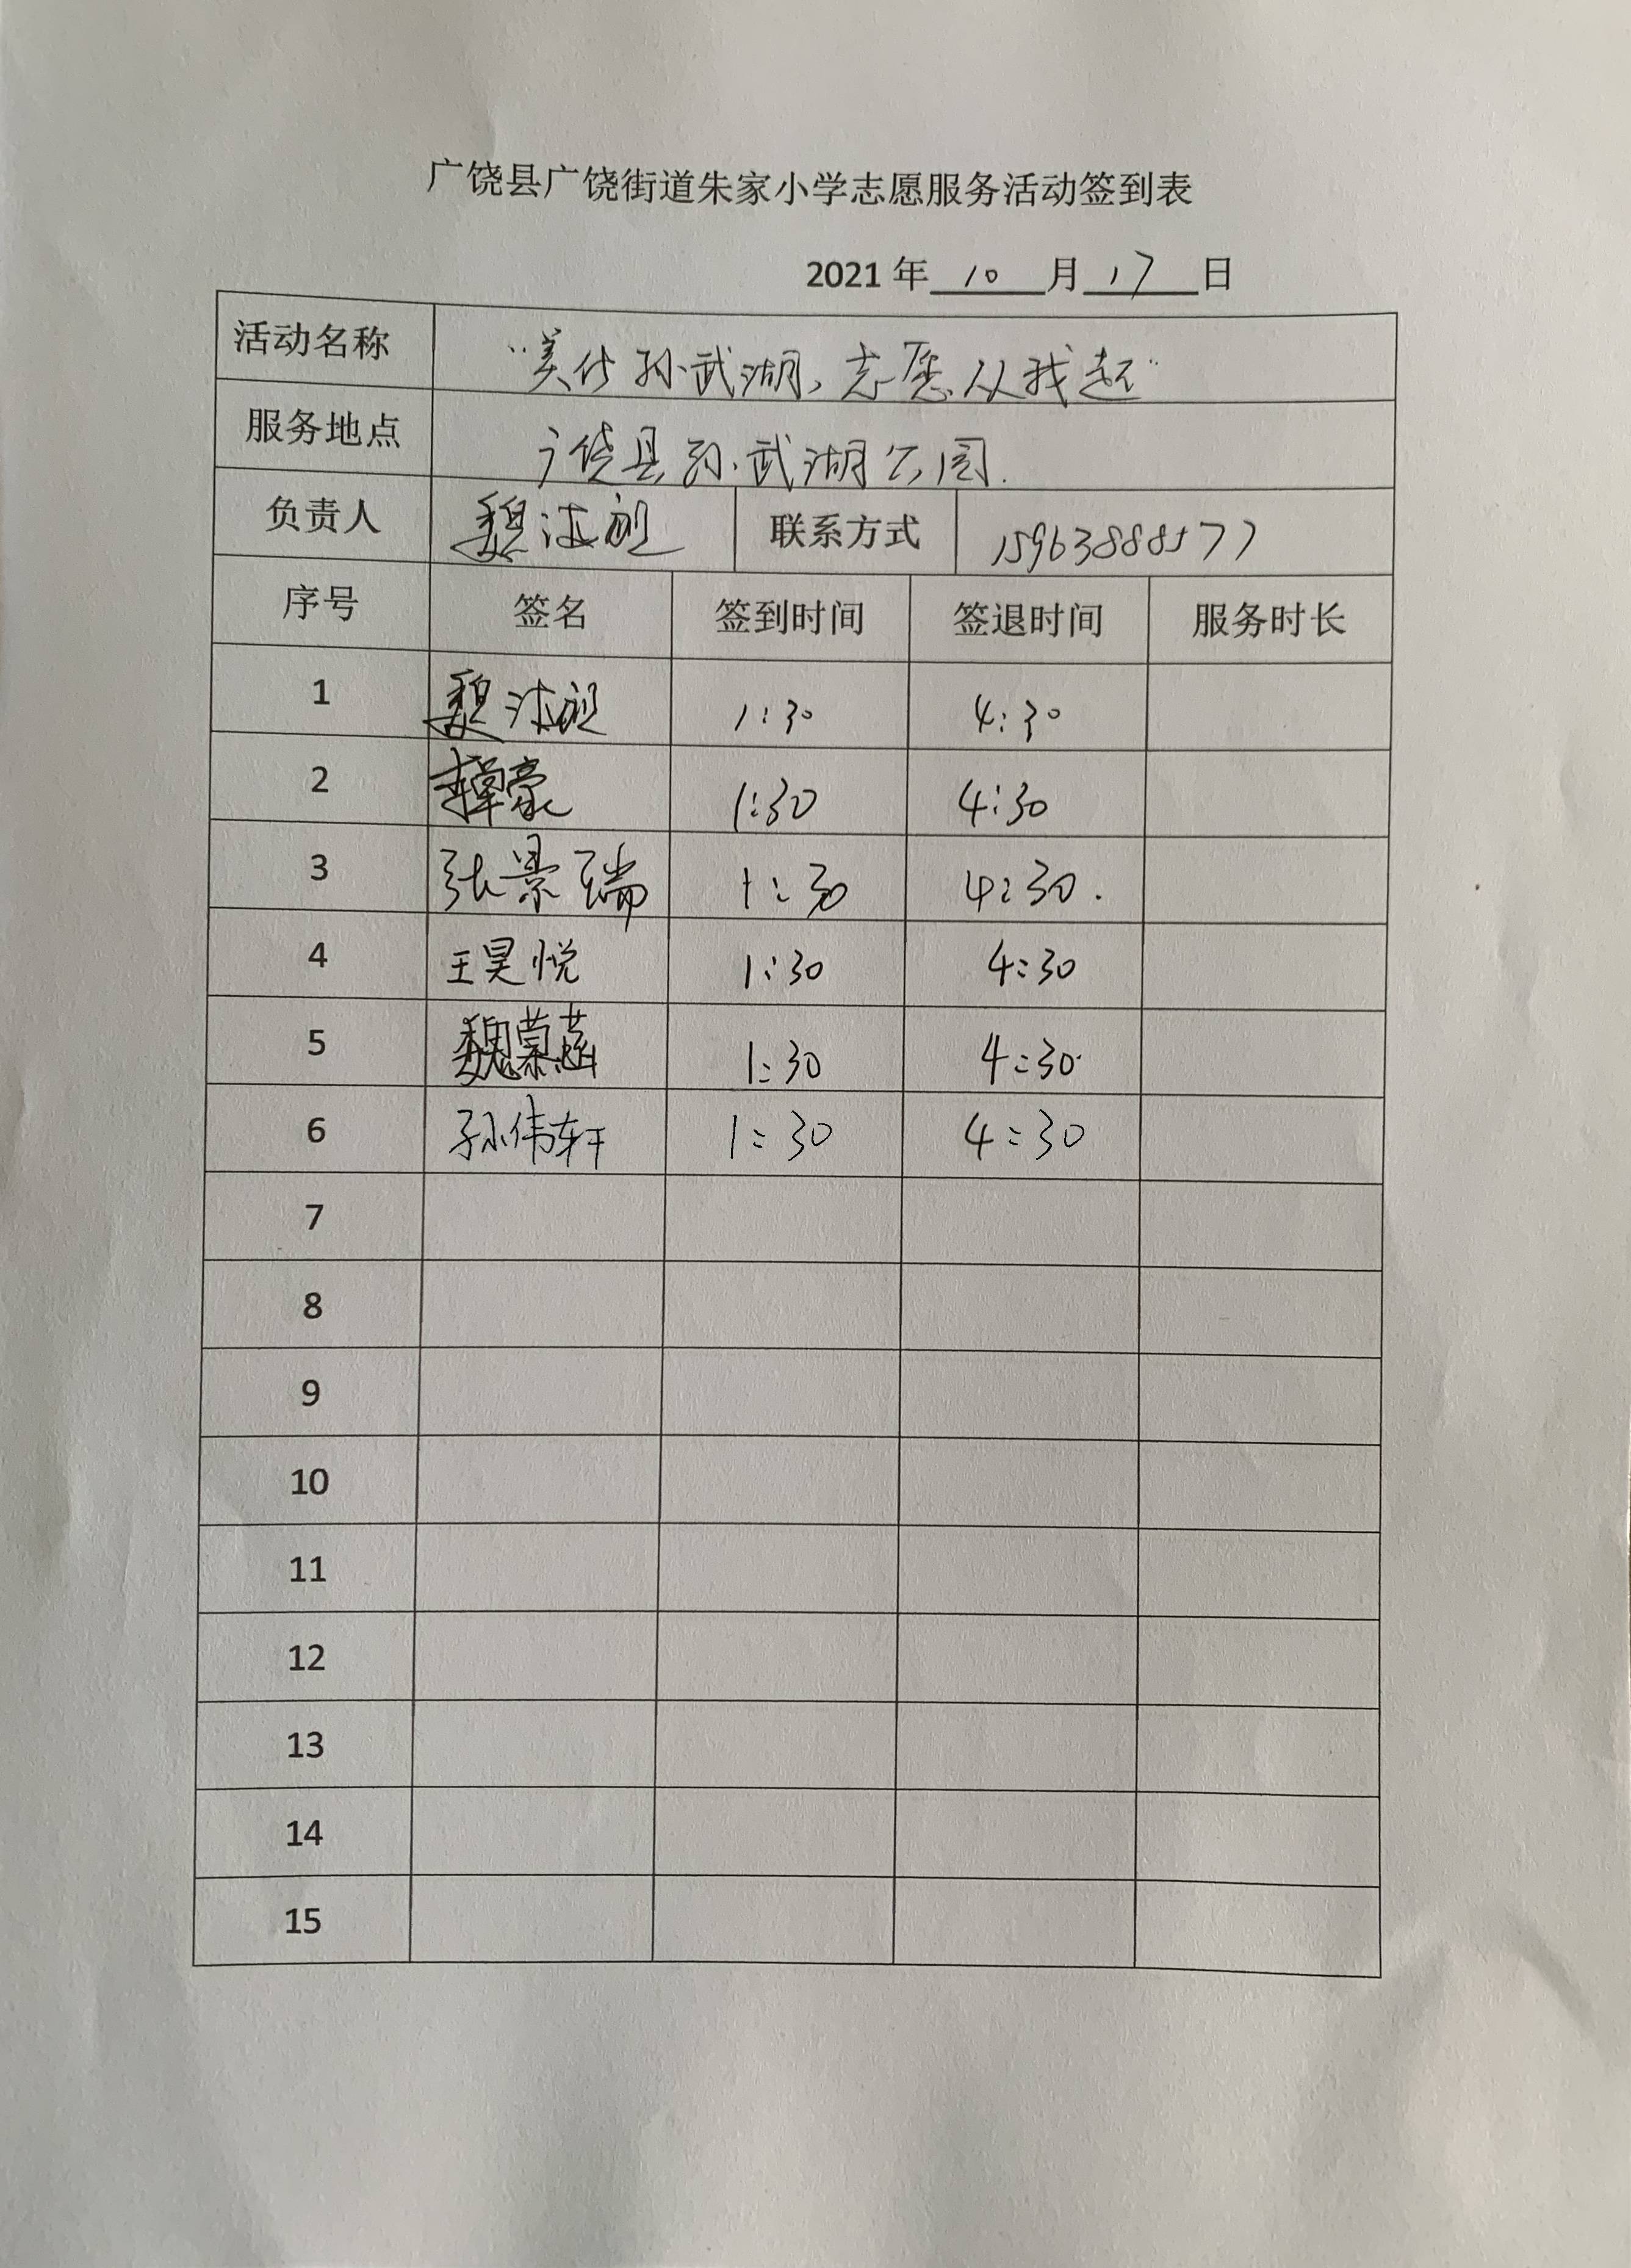 广饶县广饶街道朱家小学志愿服务活动签到表
2021 年 10 月 17 日
活动名称 “美化孙武湖，志愿从我起”
服务地点 广饶县孙武湖公园.
负责人 魏 联系方式 15963888577
序号 签名 签到时间 签退时间 服务时长
1 魏 1:30 4:30
2 豪 1:30 4:30
3 张景瑞 1:30 4:30.
4 王昊悦 1:30 4:30
5 魏慕菡 1:30 4:30
6 孙伟轩 1:30 4:30
7
8
9
10
11
12
13
14
15